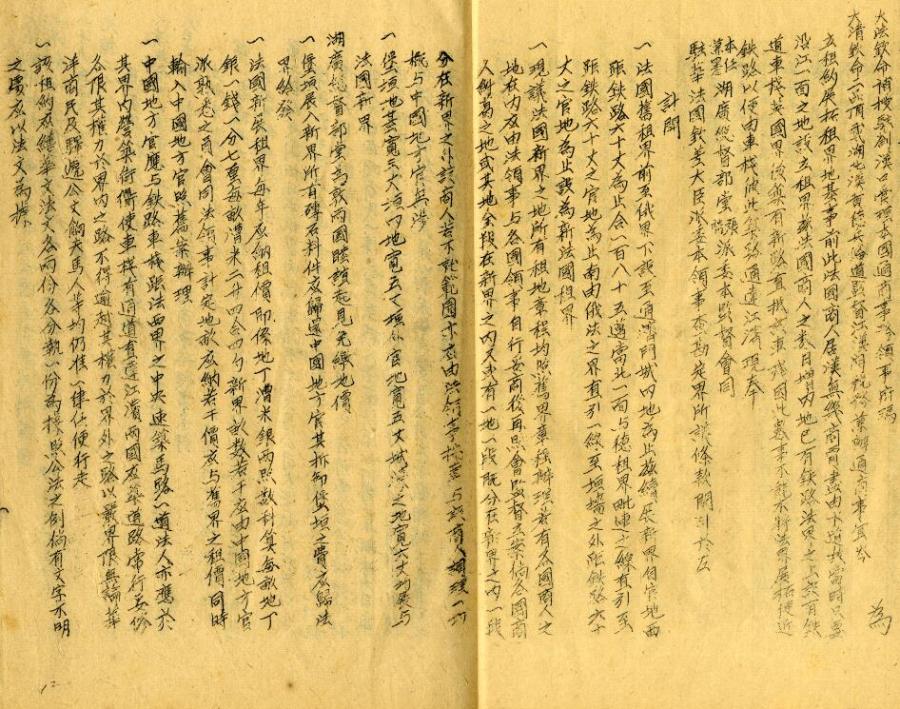 大法欽命補授駐劄漢口管理本國通商事務領事府瑪 為
大清欽命二品頂戴湖北漢黃德兵備道監督江漢關稅務兼辦通商事宜岑
立租約展拓租界地基事前此法國商人居漢無幾商賈未由下游找當時只要
沿江一面之地設立租界茲法國商人之來日增內地已有鐵路法界之上與有鐵
道車棧英國界後亦有新馬直抵與車棧因此慮事不能不將法界展拓使近
鐵路以便由車棧彼此築路通達江濱現奉
本任 湖廣總督部堂 派委本監督會同
兼署
駐華法國欽差大臣派委本領事查勘定界所議條款開列於左
計開
一法國舊租界前至俄界下設至通濟門城內地為止茲續展新界自官地西
距鐵路六十丈為止合一百八十五邁當北一面與德租界毗連之線直引至
距鐵路六十丈之官地為止南由俄法之界直引一線至垣牆之外距鐵路六十
丈之官地為止設為新法國租界
一現議法國新界之地所有租地章程均照舊界章程辦理若有各國商人之
地在內應由法領事與各國領事自行妥商後再照會監督立案倘各國商
人新舊之地或其地全段在新界之內又或有一地一段既分在新界之內一段
分在新界之外該商人若不就範圍亦應由法領事與該商人辦理一切
概與中國地方官無涉
一堡垣地基寬三大垣內地寬五丈垣外官地寬五丈城濠之地寬六丈均與與
法國新界
湖廣總督部堂為敦兩國睦誼起見免繳地價
一堡垣展入新界所有磚石料件應歸還中國地方官其拆卸堡垣之費應歸法
界給發
一法國新展租界每年應納租價即係地丁漕米銀兩照數科算每畝地丁
銀一錢一分七釐每畝漕米二升四合四勺新界畝數若干應由中國地方官
派熟悉之商會同法領事計定地畝應納若干價應與舊界之租價同時
輸入中國地方官照舊案辦理
一中國地方官應與鐵路車棧距法西界之中央速築馬路一道法人亦應於
其界內營築街衢使車棧有通道直達江濱兩國應築道路常行妥修
各限其權力於界內之路不得逾越其權力於界外之路以嚴界限無論華
洋商民及驛遞公文餉夫馬人等均仍准一律任便行走
一該租約應繕華文法文各兩份各分執一份為據照公法之例倘有文字不明
之處應以法文為據